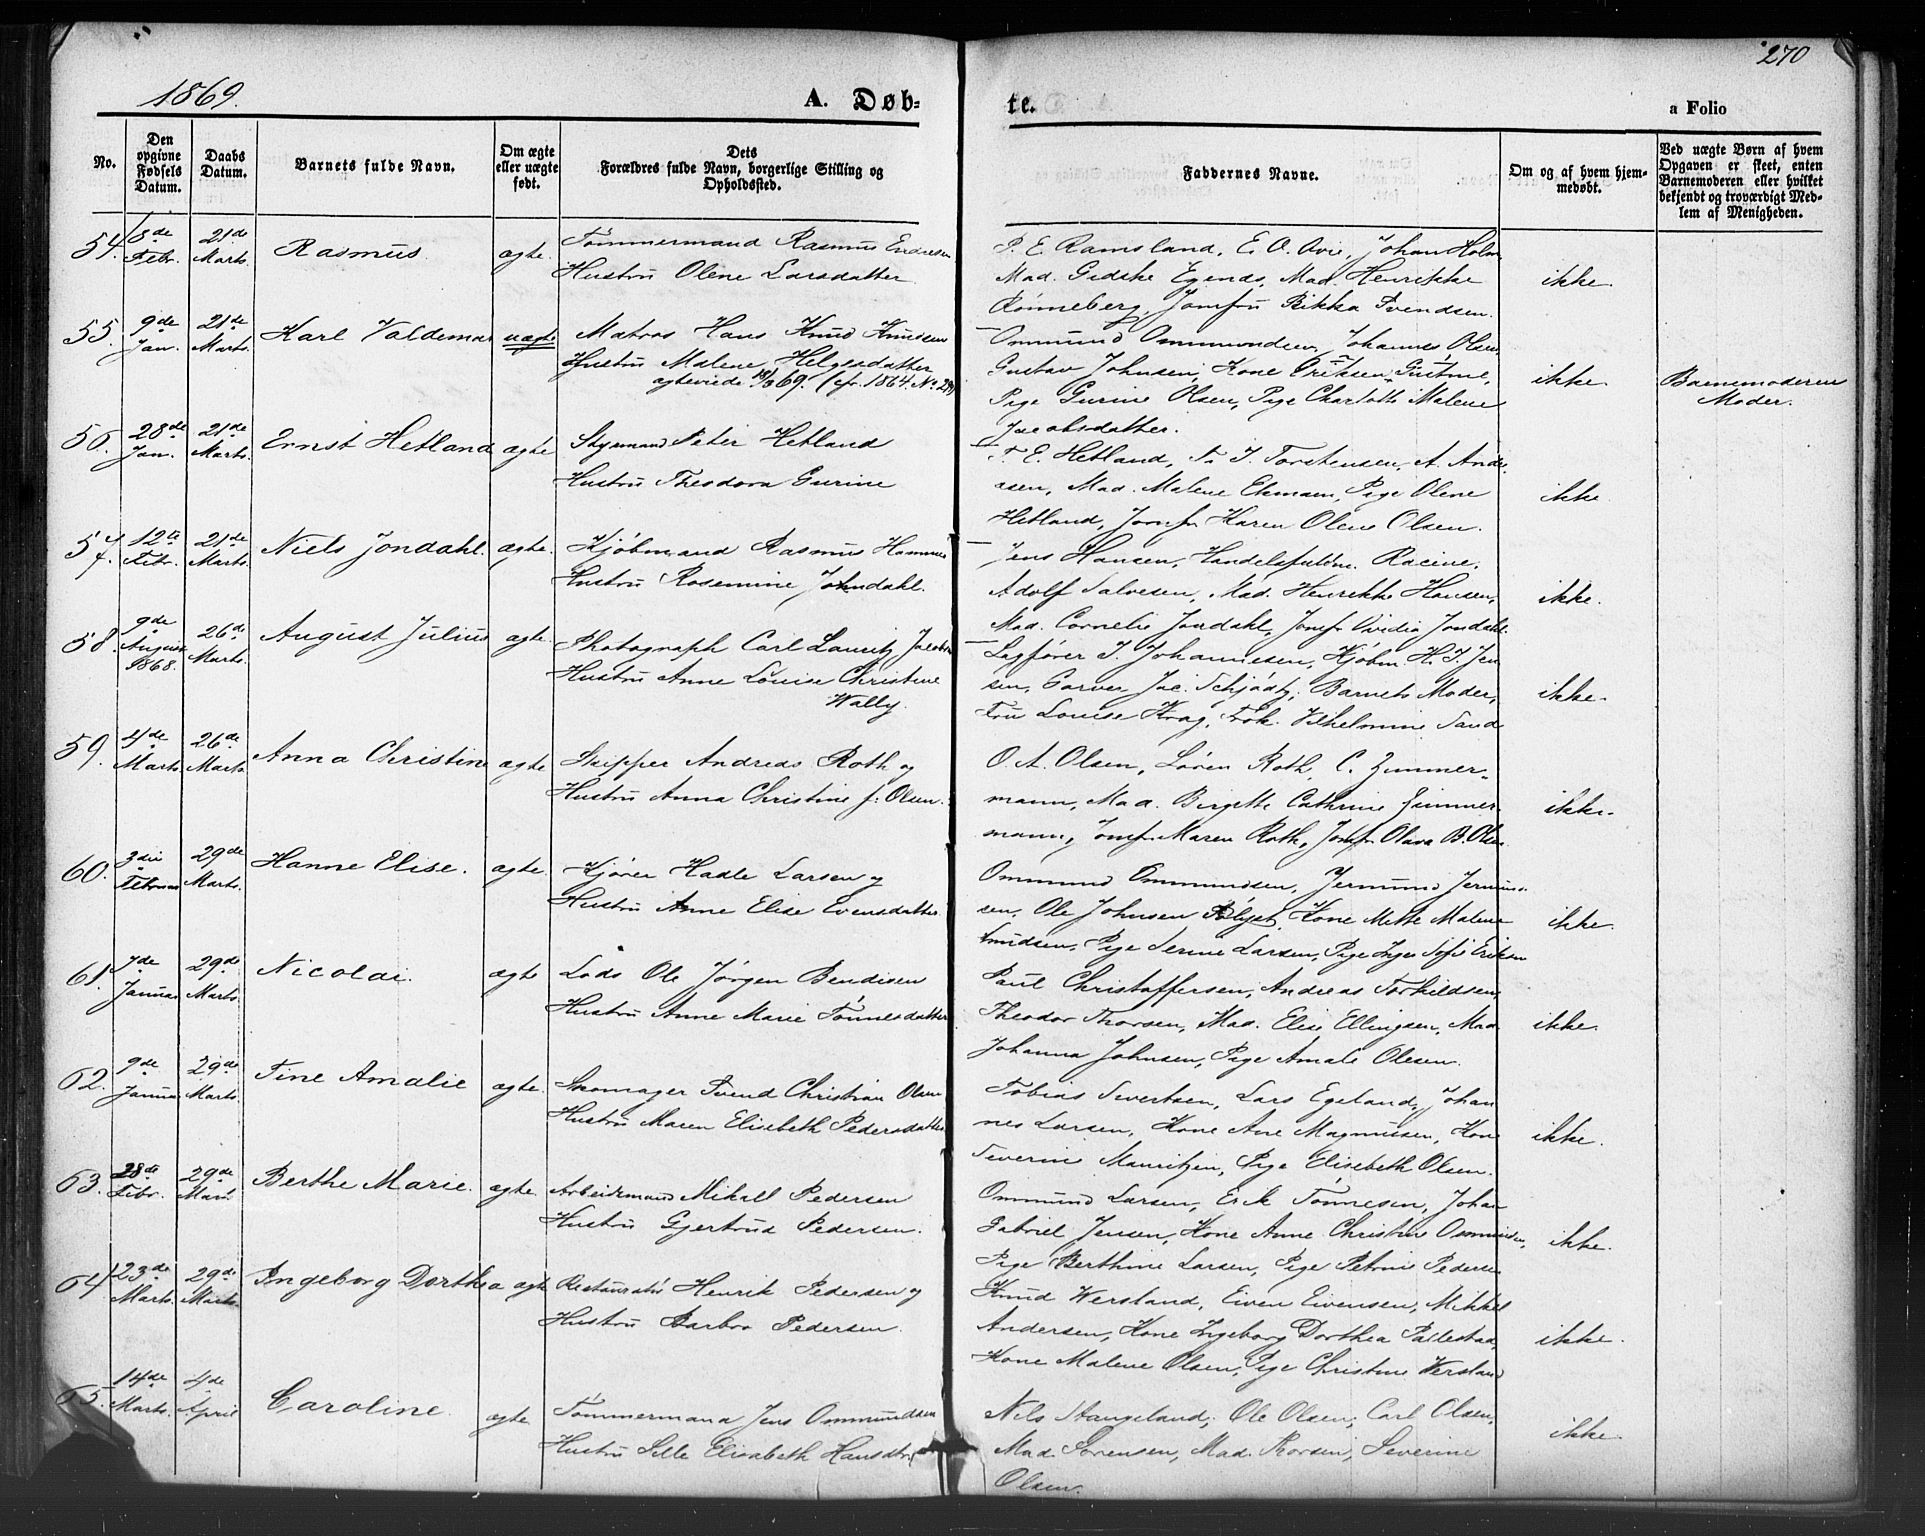 270
1869.
A. Døb-
te.
a Folio
No.
Den opgivne Fødsels Datum.
Daabs Datum.
Barnets fulde Navn.
Om ægte eller uægte født.
Dets
Forældres fulde Navn, borgerlige Stilling og
Opholdssted.
Faddernes Navne.
Om og af hvem hjem-
medøbt.
Ved uægte Børn af hvem
Opgaven er skeet, enten
Barnemoderen eller hvilket
bekjendt og troværdigt Med-
lem af Menigheden.
54. 8de Febr. 21de Marts. Rasmus. ægte. Tømmermand Rasmus Endresen
Hustru Olene Larsdatter
P. E. Ramsland, E. O. Ovie, Johan Holm
Mad. Gidske Egenes, Mad. Henrikke
Rønneberg, Jomfru Rikka Svendsen.
ikke.
55. 9de Jan. 21de Marts. Karl Valdemar uægte Matros Hans Knud Knudsen
Hustru Malene Helgesdatter
ægteviede 18/3 69. (cfr. 1864. No.
Ommund Ommundsen, Johannes Olsen,
Gustav Johnsen, Kone Eriksen,
Pige Gurine Olsen, Pige Charlotte Malene
Jacobsdatter.
ikke.
Barnemoderens
Moder.
56. 28de Jan. 21de Marts. Ernst Hetland ægte Styrmand Peter Hetland
Hustru Theodora Gurine
T. E. Hetland, T. J. Torstensen, A. Ander-
sen, Mad. Malene Ekmann, Pige Olene
Hetland, Jomfr Karen Olene Olsen.
ikke
57. 12te Febr. 21de Marts. Niels Jondahl. ægte. Kjøbmand Rasmus Hammer
Hustru Rosemine Johndahl.
Jens Hansen, Racine,
Adolf Salvesen, Mad. Henrikke Hansen,
Mad. Cornelie Jondahl, Jomfr Ovidia Jondahl.
ikke.
58. 9de August 1868. 26de Marts. August Julius ægte. Photograph Carl Lauritz Jacobsen
Hustru Anne Louise Christine
Wally.
Sagfører J. Johannesen, Kjøbm. H. J. Jen-
sen, Garver Jac. Schjødt, Barnets Moder,
Fru Louise Krag, Frøk. Vilhelmine Sand
ikke.
59. 4de Marts 26de Marts. Anna Christine ægte Skipper Andreas Roth og
Hustru Anna Christine f: Olsen.
O. A. Olsen, Søren Roth, C. Zimmer-
mann, Mad. Birgitte Cathrine Zimmer-
mann, Jomfr. Maren Roth, Jomfr Olava B. Olsen
ikke.
60. 3die Februar 29de Marts. Hanne Elise. ægte. Kjører Hadle Larsen og
Hustru Anne Elise Evensdatter.
Ommund Ommundsen, Jermund Jermund-
sen, Ole Johnsen Kone Mette Malene
Knudsen, Pige Serine Larsen, Pige Inger Sofie Eriksen
ikke.
61. 7de Januar 29de Marts. Nicolai. ægte Lods Ole Jørgen Bendisen
Hustru Anne Marie Tønnesdatter
Paul Christoffersen, Andreas Torkildsen,
Theodor Thorsen, Mad. Elise Ellingsen, Mad.
Johanna Johnsen, Pige Amale Olesen.
ikke.
62. 9de Januar 29de Marts. Tine Amalie ægte. Skomager Svend Christian Olsen
Hustru Maren Elisebeth Pedersdatter
Tobias Sivertsen, Lars Egeland, Johan-
nes Larsen, Kone Ane Magnussen, Kone
Severine Mauritzen, Pige Elisebeth Olsen.
ikke.
63. 28de Febr. 29de Marts Berthe Marie. ægte. Arbeidsmand Mikall Pedersen
Hustru Gjertrud Pedersen.
Ommund Larsen, Erik Tønnesen, Johan
Gabriel Jensen, Kone Anne Christine Ommundsen,
Pige Berthine Larsen, Pige Petrine Pedersen
ikke.
64. 23de Marts. 29de Marts. Ingeborg Dorthea ægte Restauratør Henrik Pedersen og
Hustru Barbro Pedersen.
Knud Wersland, Eiven Eivensen, Mikkel
Andersen, Kone Ingeborg Dorthea
Kone Malene Olsen, Pige Christine Wersland
ikke.
65. 14de Marts. 4de April Caroline. ægte. Tømmermand Jens Ommundsen
Hustru Sille Elisabeth Hansdtr.
Nils Stangeland, Ole Olsen, Carl Olsen,
Mad. Sørensen, Mad. Thorsen, Severine
Olsen.
ikke.